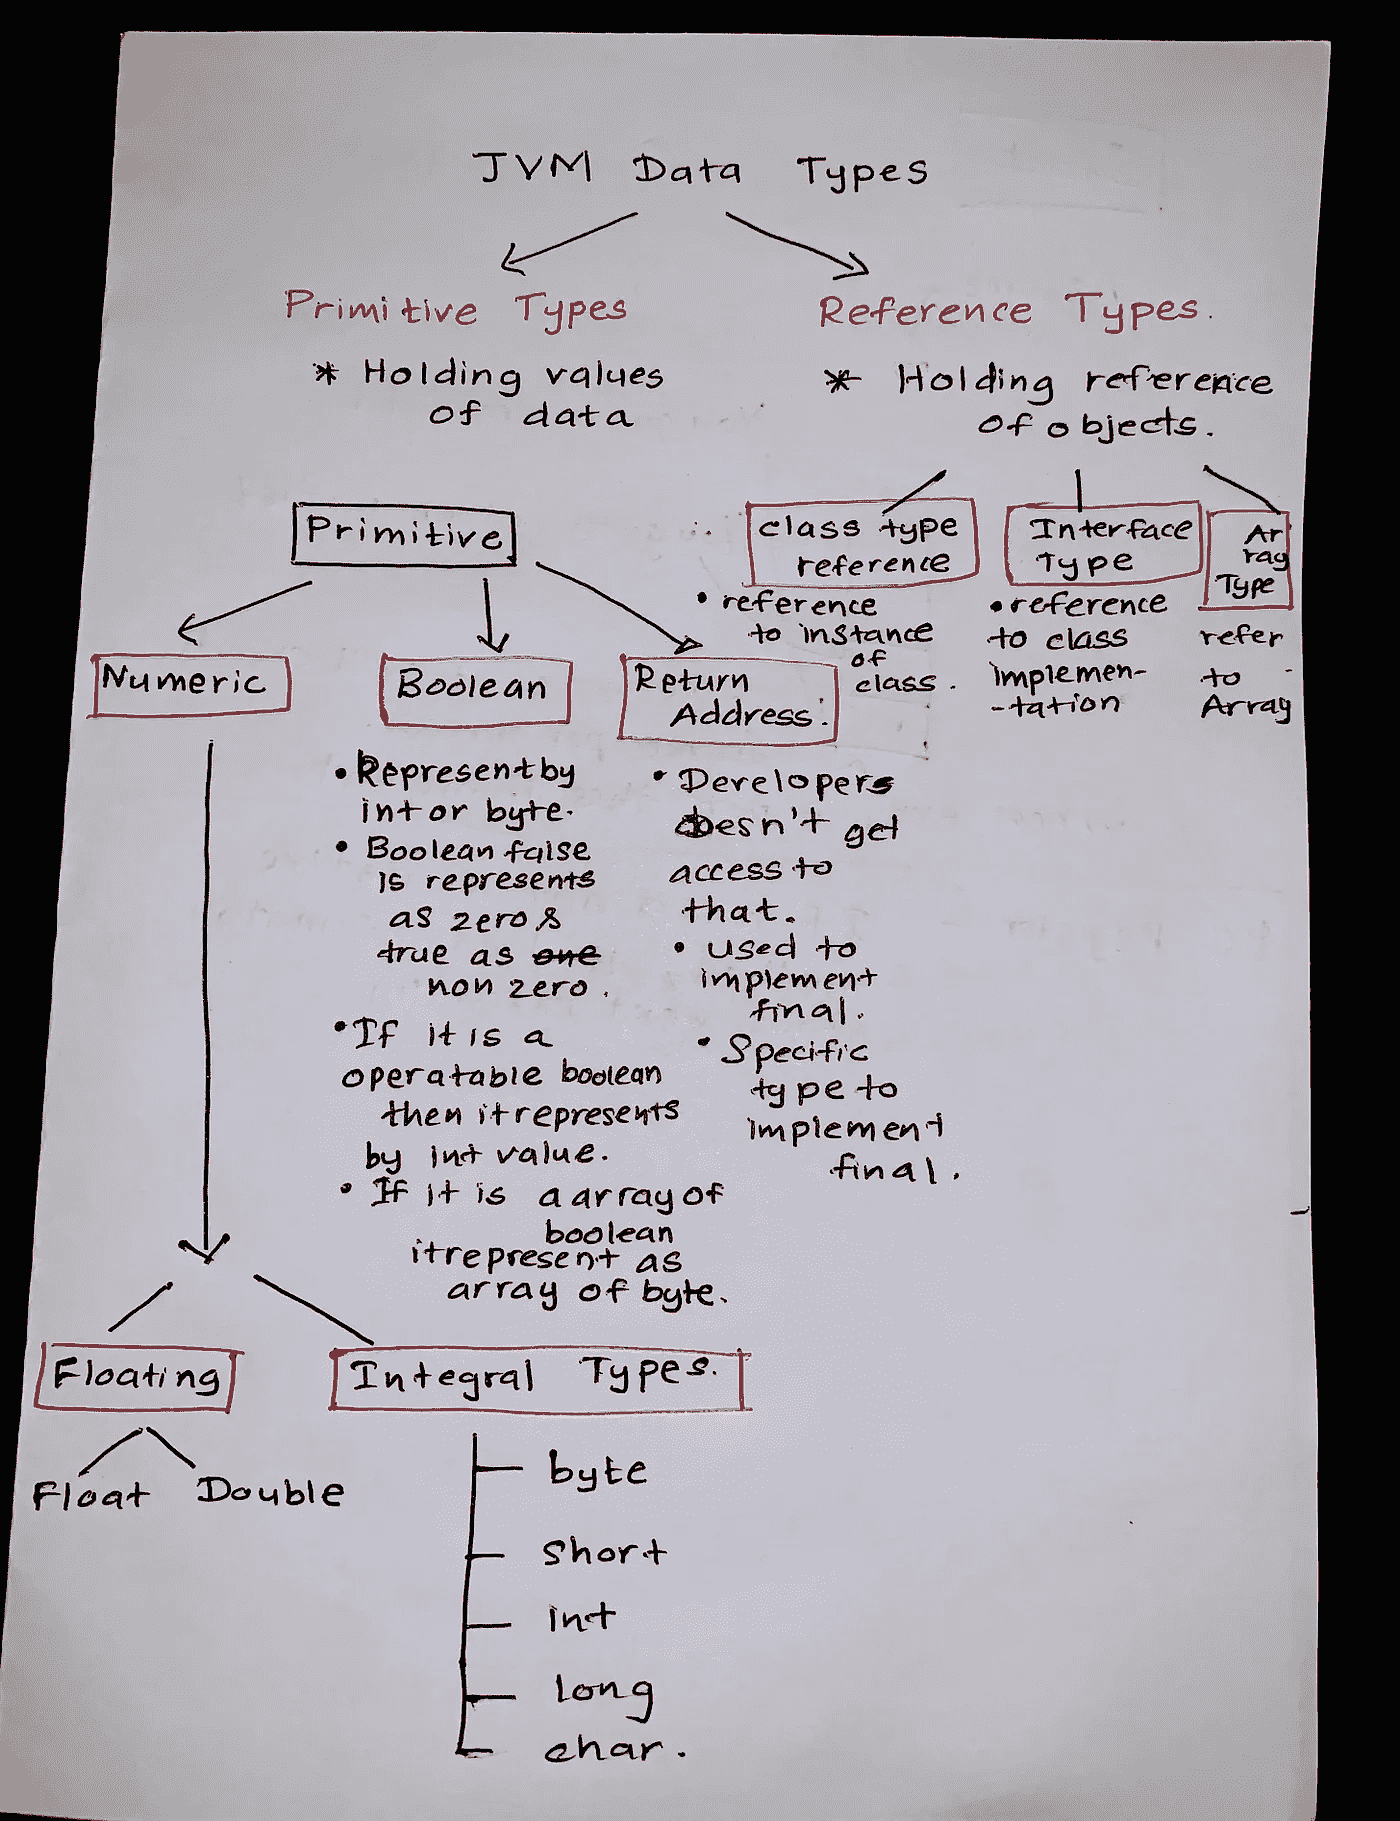 JVM Data Types
Primitive Types
* Holding values
of data
Reference Types.
* Holding reference
of objects.
class type
reference
• reference
to instance
of
class.
Interface
Type
• reference
to class
implemen-
-tation
Ar
ray
Type
refer
to
Array
Primitive
Numeric
Boolean
• Represent by
int or byte.
• Boolean false
is represents
as zero &
true as one
non zero.
• If it is a
operatable boolean
then it represents
by int value.
• If it is a array of
boolean
it represent as
array of byte.
Return
Address.
• Developers
doesn't get
access to
that.
• used to
implement
final.
• Specific
type to
implement
final.
Floating
Float Double
Integral Types.
byte
short
int
long
char.